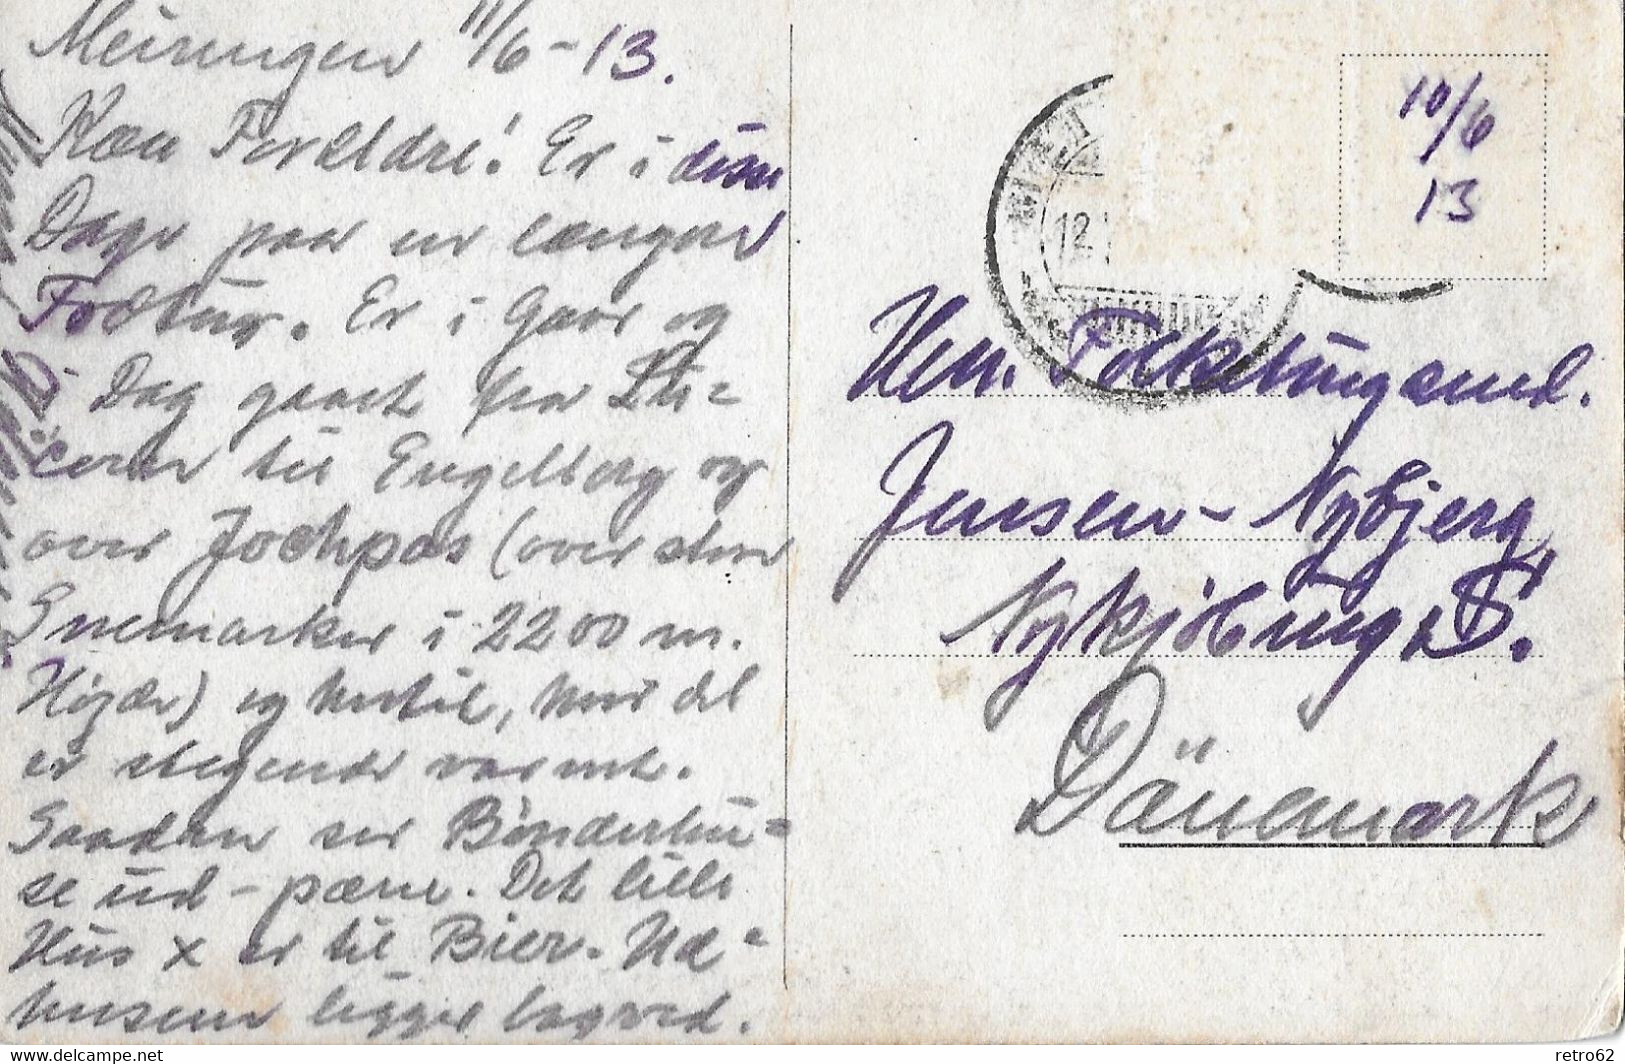 Meiringen 11/6-13.
Kære Forældre! Er i disse
Dage paa en længere
Fodtur. Er i Gaar og
i Dag gaaet fra Lu=
cern til Engelberg og
over Jochpas (over store
Snemarker i 2200 m.
Højde) og hertil, hvor det
er stegende varmt.
Saadan ser Bønderhu=
se ud - pæne. Det lille
Hus x er til Bier. Ud=
husene ligger bagved.
10/6
13
12.
Herr. Folketingsmd.
Jensen-Nybjerg,
Nykjöbing S.
Dänemark
www.delcampe.net
retro62